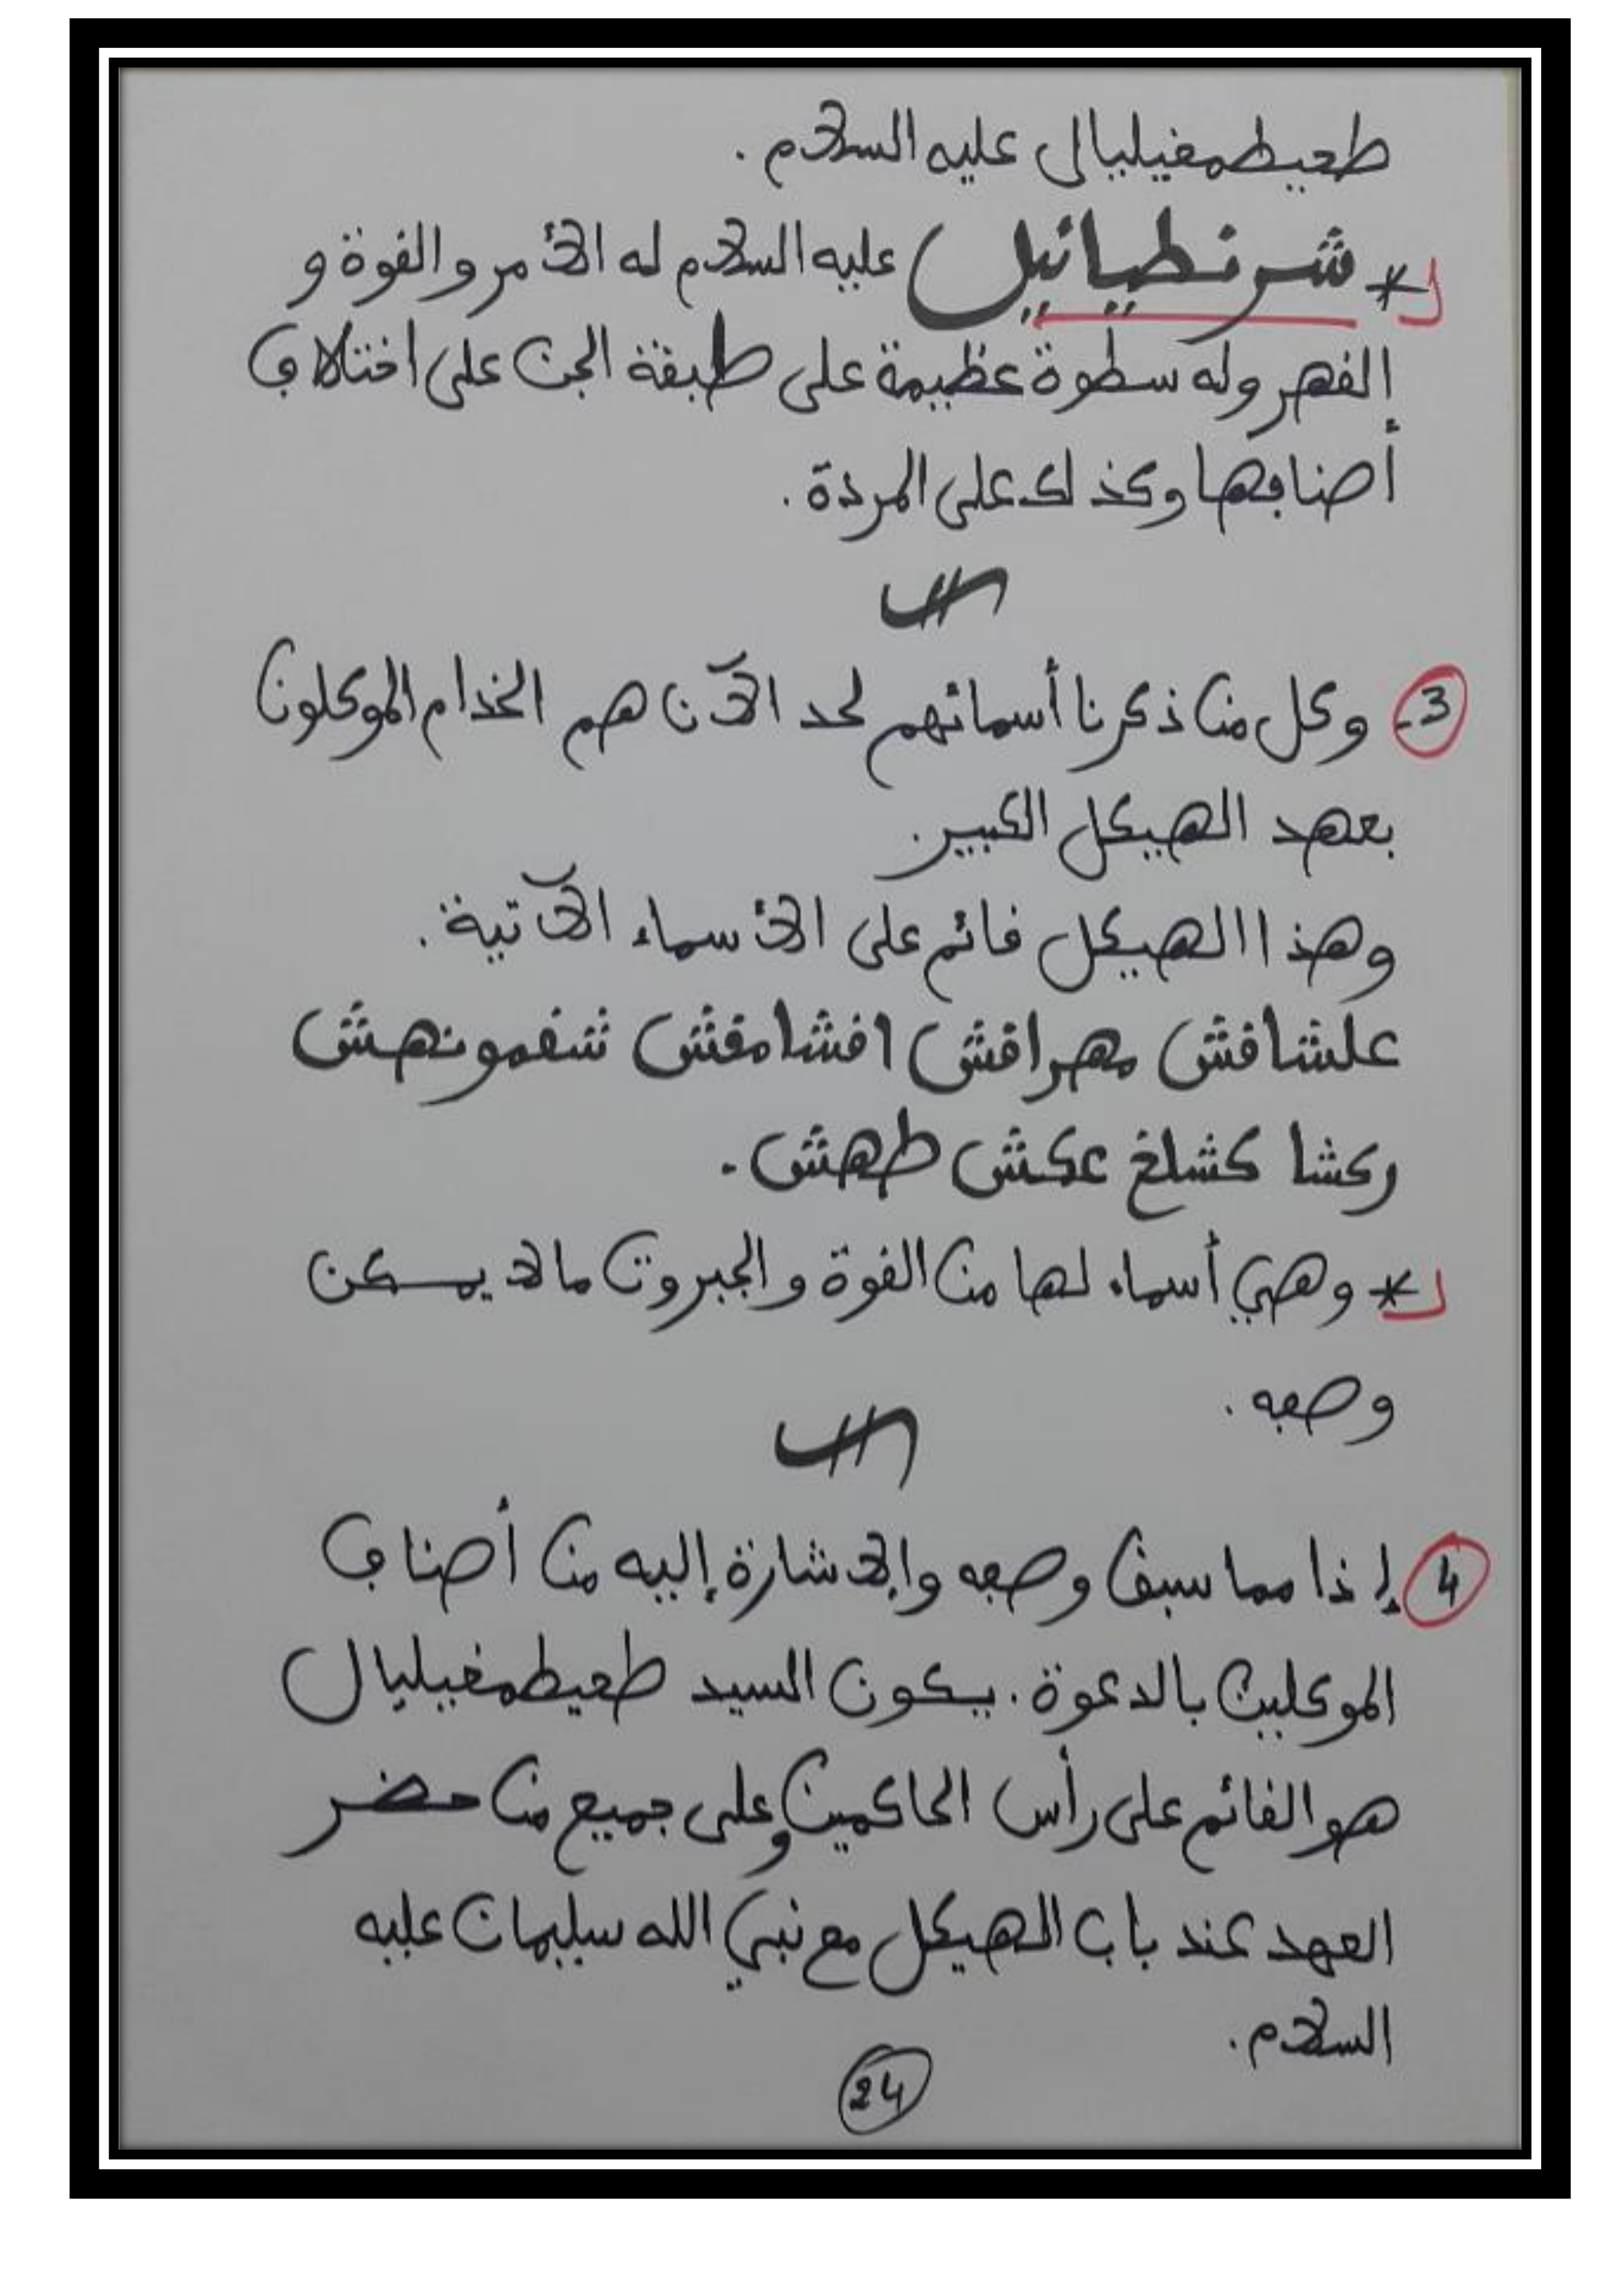 طعيطمغيليال عليه السلام .
* شرنطيائيل عليه السلام له الأمر والقوة و
القهر وله سطوة عظيمة على طبقة الجن على اختلاف
أصنافها وكذلك على المردة .
3- وكل من ذكرنا أسمائهم لحد الآن هم الخدام الموكلون
بعهد الهيكل الكبير .
وهذا الهيكل قائم على الأسماء الآتية .
علشاقش مهراقش اقشامقش شقمونهش
ركشا كشلخ عكش طهش .
* وهي أسماء لها من القوة والجبروت ما لا يمكن
وصفه .
4 إذا مما سبق وصفه والإشارة إليه من أصناف
الموكلين بالدعوة . يكون السيد طعيطمغيليال
هو القائم على رأس الحاكمين وعلى جميع من حضر
العهد عند باب الهيكل مع نبي الله سليمان عليه
السلام .
24